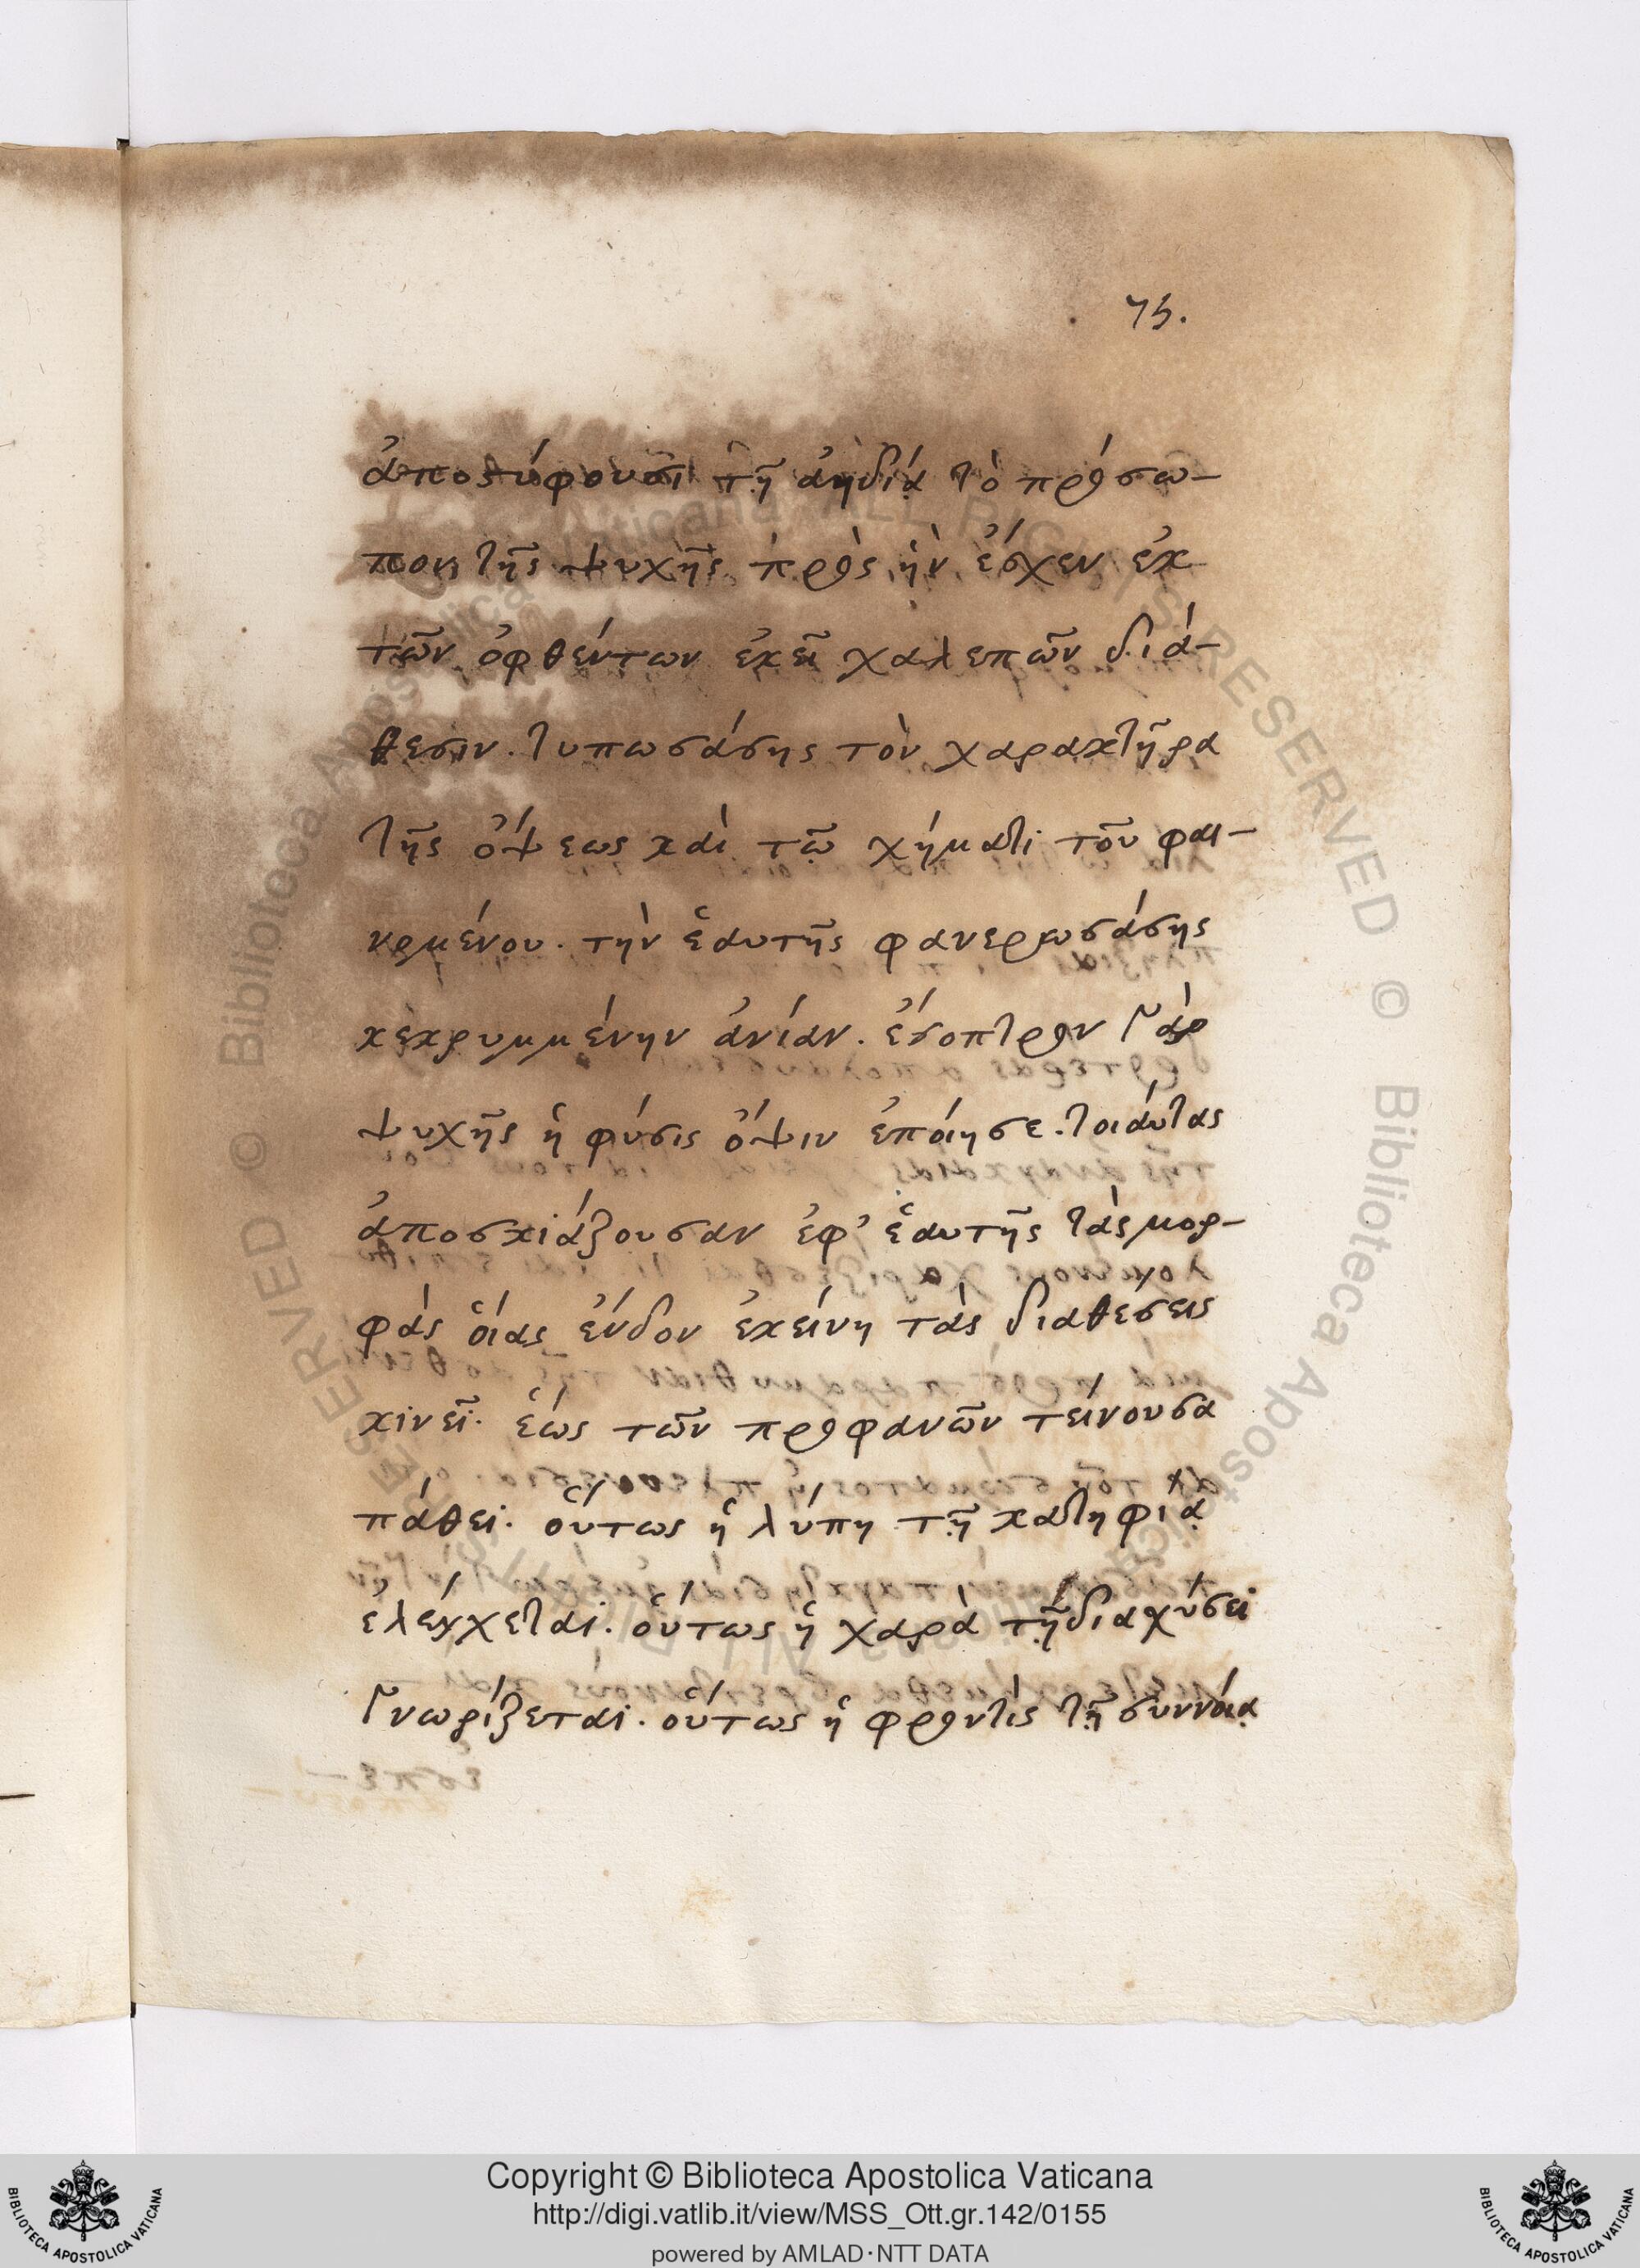 75.
ἀποστύφουσι τῇ ἀηδίᾳ τὸ πρόσω-
πον τῆς ψυχῆς πρὸς ἣν ἔσχεν ἐκ
τῶν ὀφθέντων ἐκεῖ χαλεπῶν διά-
θεσιν. τυπωσάσης τὸν χαρακτῆρα
τῆς ὄψεως καὶ τῷ χήματι τοῦ φαι-
νομένου. τὴν ἑαυτῆς φανερωσάσης
κεκρυμμένην ἀνίαν. ἔσοπτρον γάρ
ψυχῆς ἡ φύσις ὄψιν ἐποίησε. τοιάυτας
ἀποσκιάζουσαν ἐφ’ ἑαυτῆς τὰς μορ-
φὰς ὅιας ἔνδον ἐκείνη τὰς διαθέσεις
κινεῖ. ἕως τῶν προφανῶν τείνουσα
πάθει. ὅυτως ἡ λύπη τῇ κατηφίᾳ
ἐλέγχεται. ὅυτως ἡ χαρὰ τῇ διαχύσει
γνωρίζεται. ὅυτως ἡ φροντὶς τῇ συννόιᾳ
Copyright © Biblioteca Apostolica Vaticana
http://digi.vatlib.it/view/MSS_Ott.gr.142/0155
powered by AMLAD·NTT DATA
BIBLIOTECA APOSTOLICA VATICANA
BIBLIOTECA APOSTOLICA VATICANA